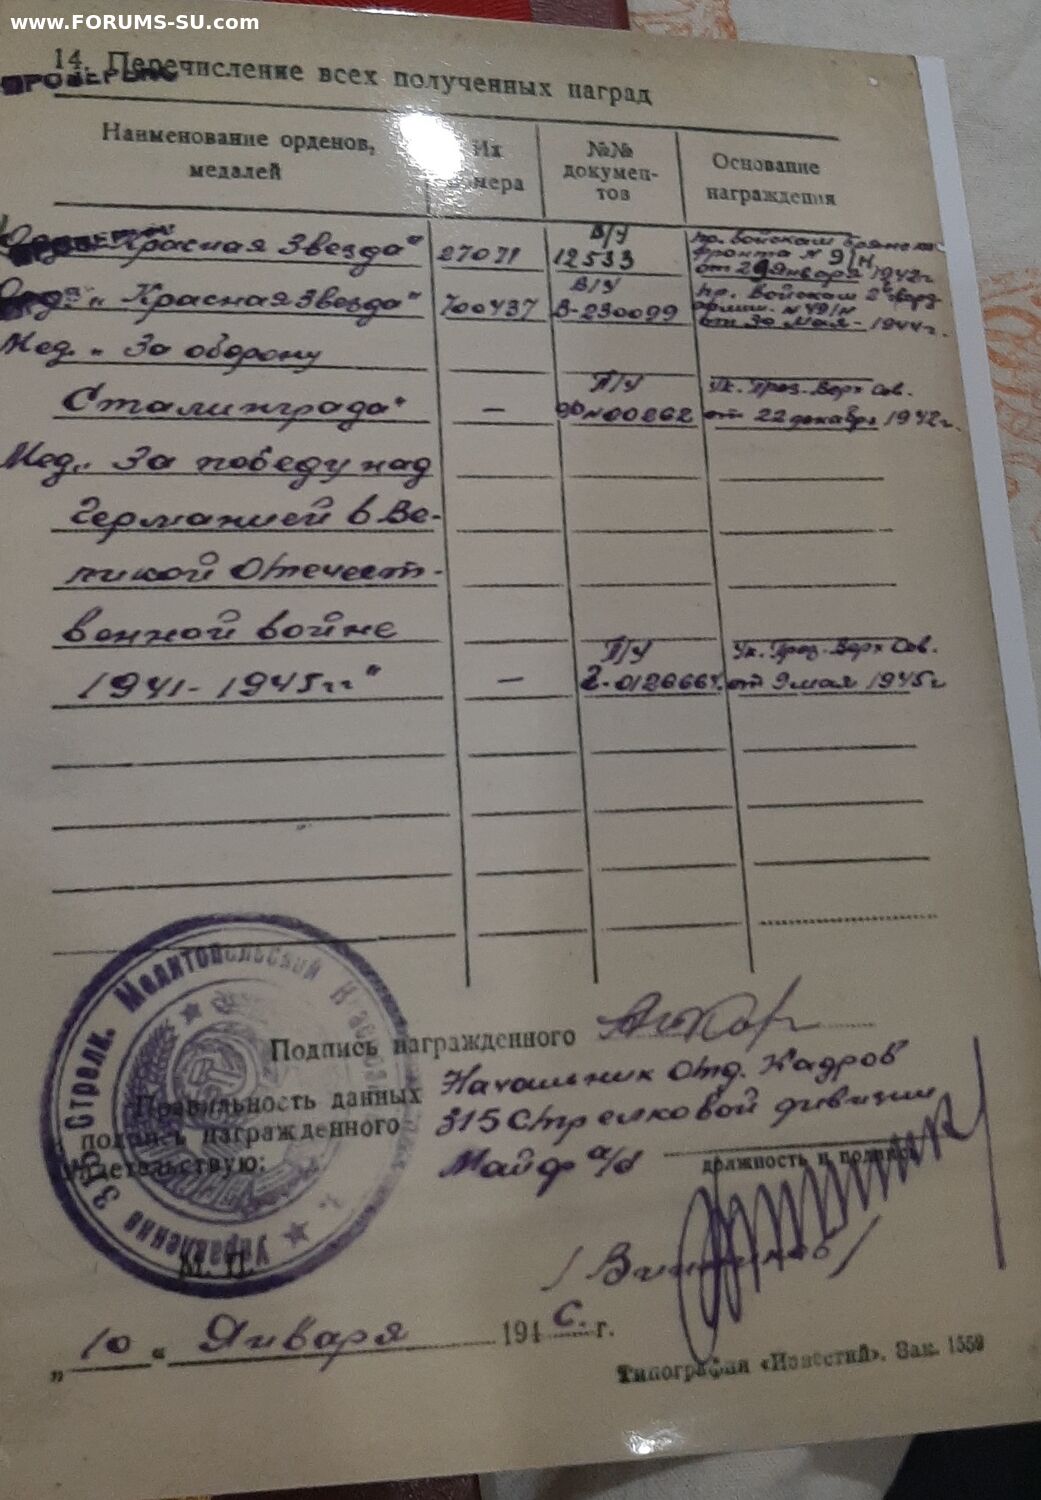 www.FORUMS-SU.com
14. Перечисление всех полученных наград
ПРОВЕРЕНО
Наименование орденов, медалей
Их номера
№№ докумен-тов
Основание награждения
Орд. "Красная Звезда" 27071 В/У 12533 пр. войскам Брянск. фронта № 9/Н от 29 января 1942г
Орд. "Красная Звезда" 700437 В/У В-230099 пр. Войскам 2 гвард. армии. №491/Н от 30 мая - 1944г.
Мед. "За оборону
Сталинграда" — П/У №00262 Ук. През. Верх Сов. от 22 декабря 1942г.
Мед. "За победу над
Германией в Ве-
ликой Отечест-
венной войне
1941-1945гг" — П/У Ук. През. Верх Сов. от 9 мая 1945г
Подпись награжденного
Правильность данных
подпись награжденного
Начальник Отд. Кадров
315 Стрелковой дивизии
Майор а/с
должность и подпись
Управление 315 Стрелк. Мелитопольской
М. П.
„ 10 " Января 1946 г.
Типография «Известий». Зак. 1559